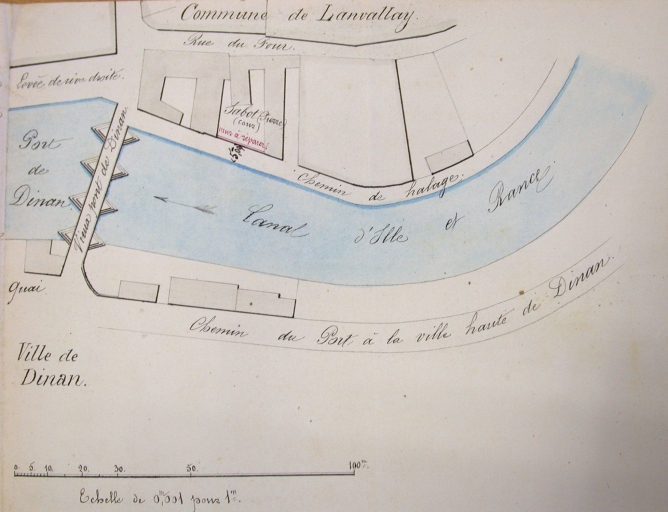 Commune de Lanvallay.
Rue du Four.
Levée de rive droite.
Sabot (Pierre)
(cour)
mur à réparer
Port
de
Dinan
Vieux pont de Dinan
Chemin de halage.
Canal d'Ille et Rance.
Quai
Chemin du Port à la ville haute de Dinan.
Ville de
Dinan.
0. 5. 10. 20. 30. 50. 100m.
Echelle de 0,m001 pour 1m.